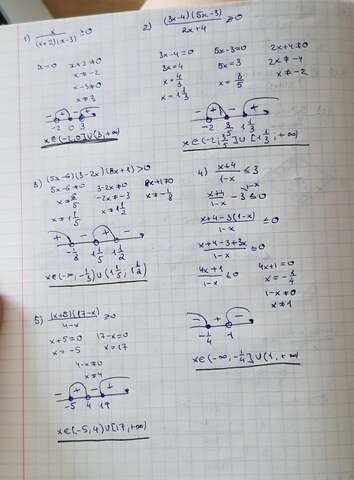 1) x/((x+2)(x-3)) ≥0
x=0 x+2≠0
x≠-2
x-3≠0
x≠3
- + - +
-2 0 3
x∈(-2,0]∪(3,+∞)
2) ((3x-4)(5x-3))/(2x+4) ≥0
3x-4=0 5x-3=0 2x+4≠0
3x=4 5x=3 2x≠-4
x=4/3 x=3/5 x≠-2
x=1 1/3
- + - +
-2 3/5 1 1/3
x∈(-2,3/5]∪[1 1/3,+∞)
3) (5x-6)(3-2x)(8x+1)>0
5x-6≠0 3-2x≠0 8x+1≠0
x≠6/5 -2x≠-3 x≠-1/8
x≠1 1/5 x≠1 1/2
+ - + -
-1/8 1 1/5 1 1/2
x∈(-∞,-1/8)∪(1 1/5, 1 1/2)
4) (x+4)/(1-x) ≤3
(x+4)/(1-x) -3 ≤0
(x+4-3(1-x))/(1-x) ≤0
(x+4-3+3x)/(1-x) ≤0
(4x+1)/(1-x) ≤0
4x+1=0
x=-1/4
1-x≠0
x≠1
- + -
-1/4 1
x∈(-∞,-1/4]∪(1,+∞)
5) ((x+5)(17-x))/(4-x) ≥0
x+5=0 17-x=0
x=-5 x=17
4-x≠0
x≠4
- + - +
-5 4 17
x∈[-5,4)∪[17,+∞)